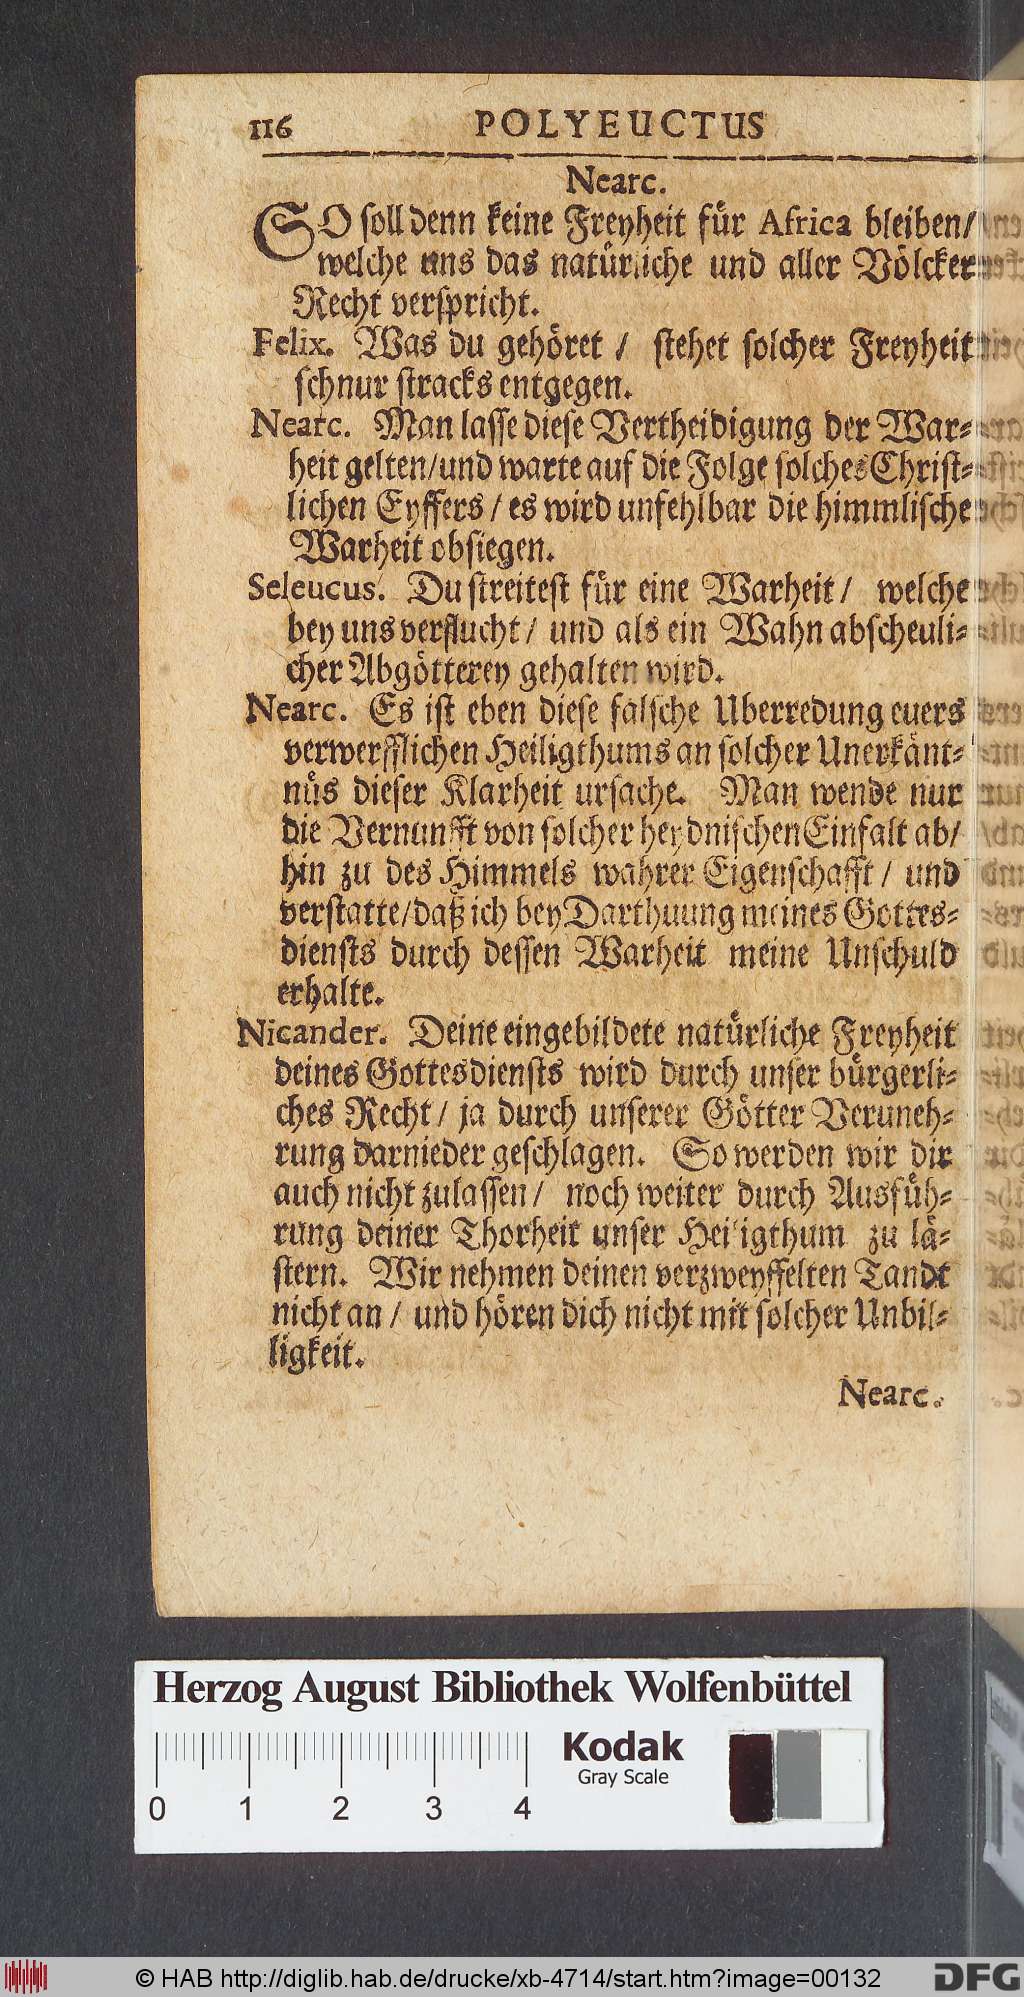 116 POLYEUCTUS
Nearc.
SO soll denn keine Freyheit für Africa bleiben/
welche uns das natürliche und aller Völcker
Recht verspricht.
Felix. Was du gehöret / stehet solcher Freyheit
schnur stracks entgegen.
Nearc. Man lasse diese Vertheidigung der War-
heit gelten/und warte auf die Folge solches Christ-
lichen Eyffers / es wird unfehlbar die himmlische
Warheit obsiegen.
Seleucus. Du streitest für eine Warheit / welche
bey uns verflucht / und als ein Wahn abscheuli-
cher Abgötterey gehalten wird.
Nearc. Es ist eben diese falsche Uberredung euers
verwerfflichen Heiligthums an solcher Unerkänt-
nüs dieser Klarheit ursache. Man wende nur
die Vernunfft von solcher heydnischen Einfalt ab/
hin zu des Himmels wahrer Eigenschafft / und
verstatte/daß ich bey Darthuung meines Gottes-
diensts durch dessen Warheit meine Unschuld
erhalte.
Nicander. Deine eingebildete natürliche Freyheit
deines Gottesdiensts wird durch unser bürgerli-
ches Recht / ja durch unserer Götter Veruneh-
rung darnieder geschlagen. So werden wir dir
auch nicht zulassen / noch weiter durch Ausfüh-
rung deiner Thorheit unser Heiligthum zu lä-
stern. Wir nehmen deinen verzweyffelten Tandt
nicht an / und hören dich nicht mit solcher Unbil-
ligkeit.
Nearc.
Herzog August Bibliothek Wolfenbüttel
Kodak
Gray Scale
0 1 2 3 4
© HAB http://diglib.hab.de/drucke/xb-4714/start.htm?image=00132
DFG